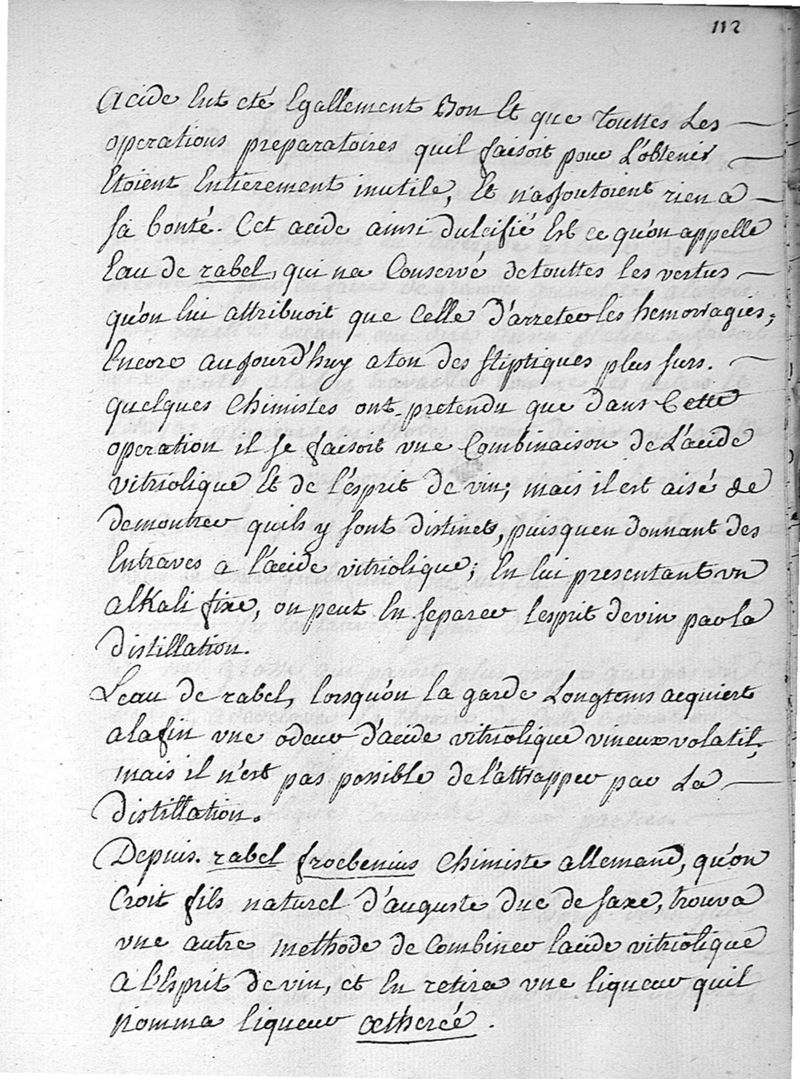 112
Acide Eut eté Egallement Bon Et que Touttes Les
operations preparatoires quil faisoit pour L'obtenir
Etoient Entierement inutile, Et n'ajoutoient rien a
sa bonté. Cet acide ainsi dulcifié Est ce qu'on appelle
Eau de rabel, qui na Conservé detouttes les vertus
qu'on lui attribuoit que Celle D'arreter les hemorragies;
Encore aujourd'huy aton des stiptiques plus surs.
quelques Chimistes ont pretendu que dans Cette
operation il se faisoit une Combinaison de L'acide
vitriolique Et de l'Esprit de vin; mais il est aisé de
Demontrer quils y sont distincts, puisquen donnant des
Entraves a l'acide vitriolique; En lui presentant un
alKali fixe, on peut En separer lesprit devin par la
distillation.
L'eau de rabel, lorsqu'on la garde Longtems acquiert
alafin une odeur d'acide vitriolique vineux volatil,
mais il n'est pas possible de l'attrapper par La
distillation.
Depuis rabel froebenius Chimiste allemand, qu'on
Croit fils naturel d'auguste duc de saxe, trouva
une autre methode de Combiner lacide vitriolique
a l'Esprit de vin, et En retira une liqueur quil
nomma liqueur œtherée.